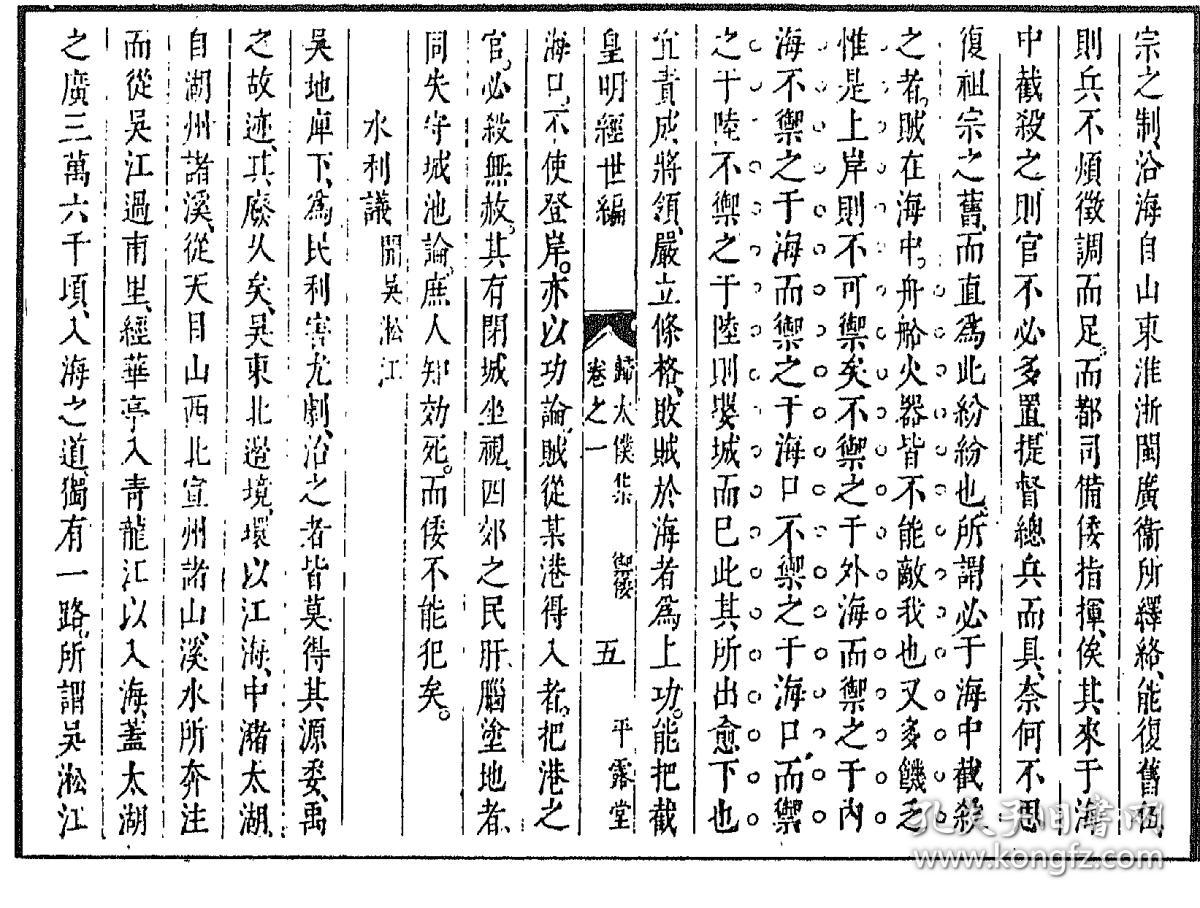 宗之制沿海自山東淮浙閩廣衞所繹絡能復舊伍
則兵不煩徵調而足而都司備倭指揮俟其來于海
中截殺之則官不必多置提督總兵而具奈何不思
復祖宗之舊而直爲此紛紛也所謂必于海中截殺
之者賊在海中舟船火器皆不能敵我也又多饑乏
惟是上岸則不可禦矣不禦之于外海而禦之于內
海不禦之于海而禦之于海口不禦之于海口而禦
之于陸不禦之于陸則嬰城而已此其所出愈下也
宜責成將領嚴立條格敗賊於海者爲上功能把截
皇明經世編
歸太僕集 禦倭
卷之一 五 平露堂
海口不使登岸亦以功論賊從某港得入者把港之
官必殺無赦其有閉城坐視四郊之民肝腦塗地者
同失守城池論庶人知効死而倭不能犯矣。
水利議 開吳淞江
吳地庳下爲民利害尤劇沿之者皆莫得其源委禹
之故迹其廢久矣吳東北邊境環以江海中瀦太湖
自湖州諸溪從天目山西北宣州諸山溪水所奔注
而從吳江過甫里經華亭入青龍江以入海蓋太湖
之廣三萬六千頃入海之道獨有一路所謂吳淞江
孔夫子旧书网
www.kongfz.com